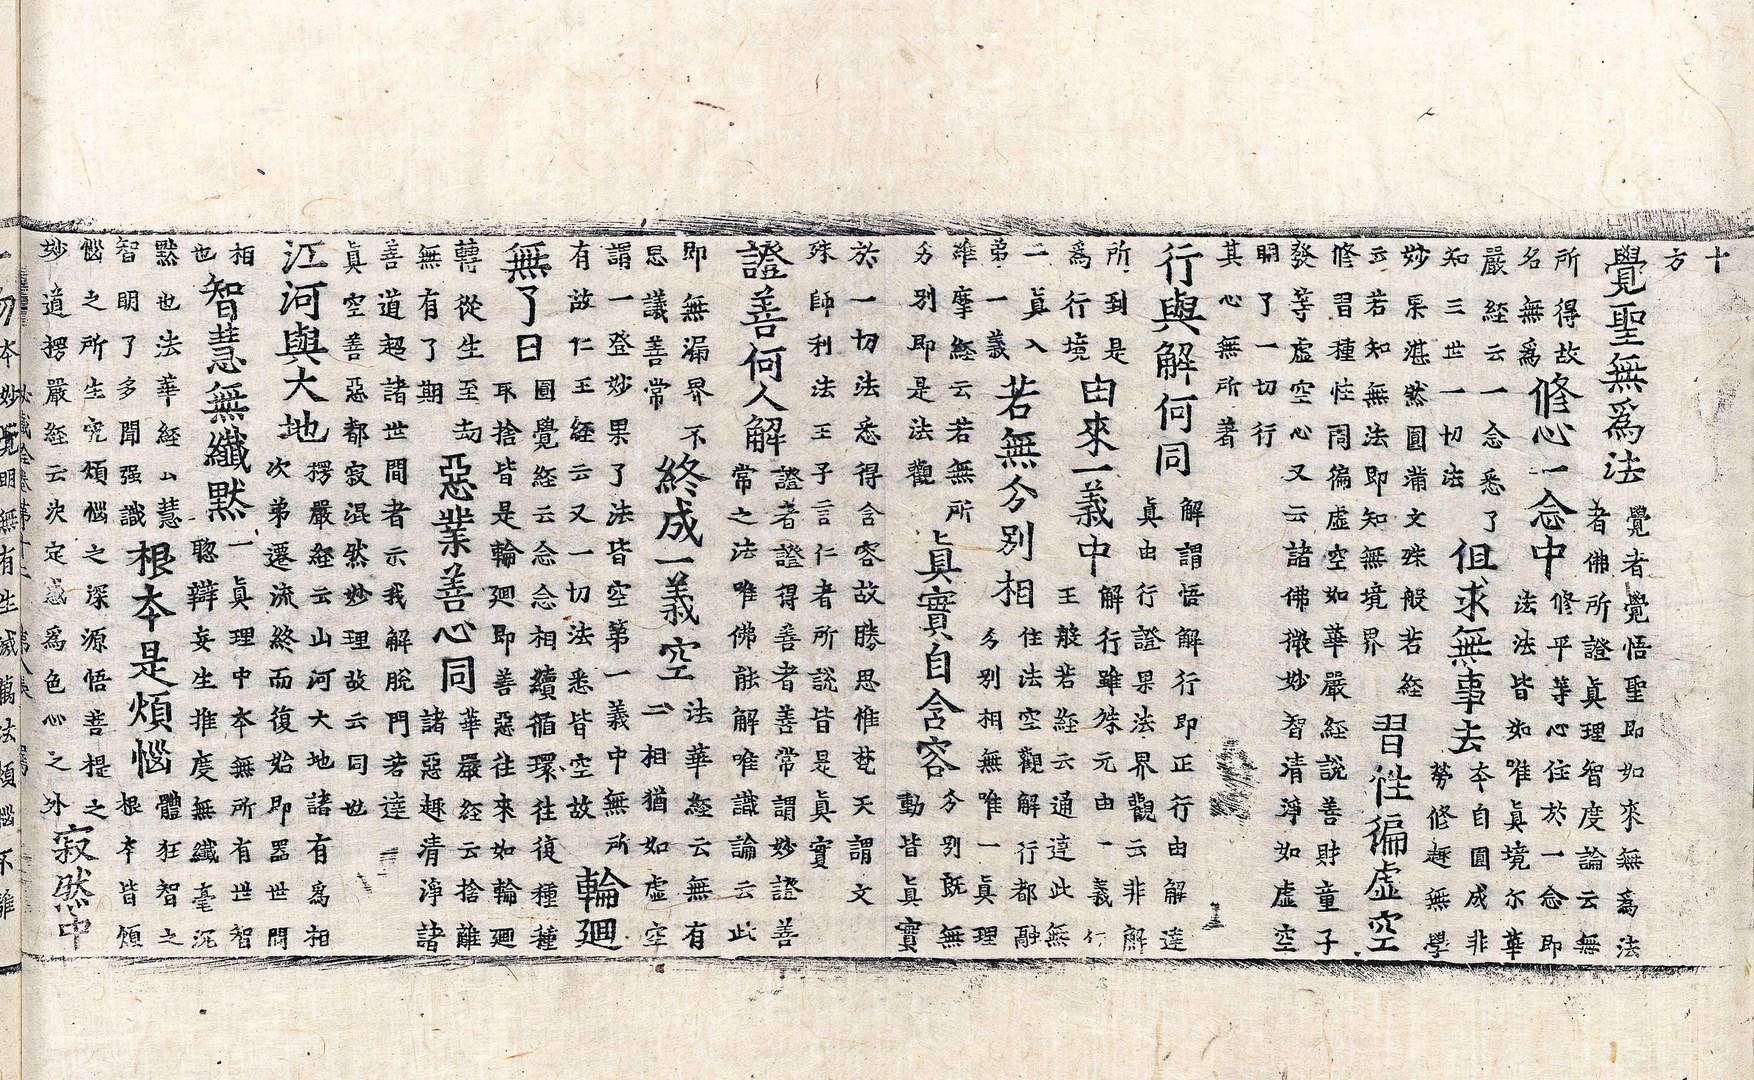 十
方
覺聖無爲法
覺者覺悟聖即如來無爲法
者佛所證眞理智度論云無
所得故
名無爲
修心一念中
修平等心住於一念即
法法皆如唯眞境尔華
嚴経云一念悉了
知三世一切法
但求無事去
本自圓成非
勞修趣無學
妙杲湛然圓滿文殊般若経
云若知無法即知無境界
習性徧虚空
修習種性同徧虚空如華嚴経說善財童子
發等虚空心又云諸佛微妙智清淨如虚空
明了一切行
其心無所著
行與解何同
解謂悟解行即正行由解達
眞由行證果法界觀云非解
所到是
爲行境
由來一義中
解行雖殊元由一義仁
王般若経云通達此無
二眞入
弟一義
若無分別相
住法空觀解行都融
分別相無唯一眞理
維摩経云若無所
分別即是法觀
眞實自含容
分別旣無
動皆眞實
於一切法悉得含容故勝思惟梵天謂文
殊師利法王子言仁者所說皆是眞實
證善何人解
證者證得善者善常謂妙證善
常之法唯佛能解唯識論云此
即無漏界不
思議善常
終成一義空
法華経云無有
二相猶如虚空
謂一登妙果了法皆空第一義中無所
有故仁王経云又一切法悉皆空故
輪廻
無了日
圓覺経云念念相續循環往復種種
取捨皆是輪廻即善惡往來如輪廻
轉從生至劫
無有了期
惡業善心同
華嚴経云捨離
諸惡趣清淨諸
善道超諸世間者示我解脫門若達
眞空善惡都寂混然妙理故云同也
江河與大地
楞嚴経云山河大地諸有爲相
次弟遷流終而復始即器世間
相
也
智慧無纎默
一眞理中本無所有世智
聦辯妄生推度無纎毫沉
默也法華経云慧
智明了多聞强識
根本是煩惱
體狂智之
根本皆煩
惱之所生䆒煩惱之深源悟菩提之
妙道楞嚴経云决定惑爲色心之外
寂然中